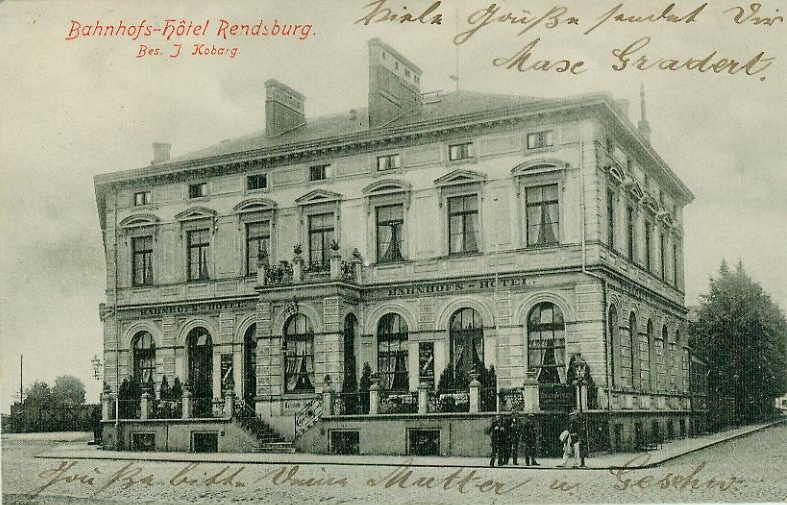 Bahnhofs-Hôtel Rendsburg.
Bes. J Kobarg.
Viele Grüße sendet Dir
Max Gradert.
BAHNHOFS-HOTEL
BAHNHOFS-HOTEL.
Grüße bitte Deine Mutter u Geschw.